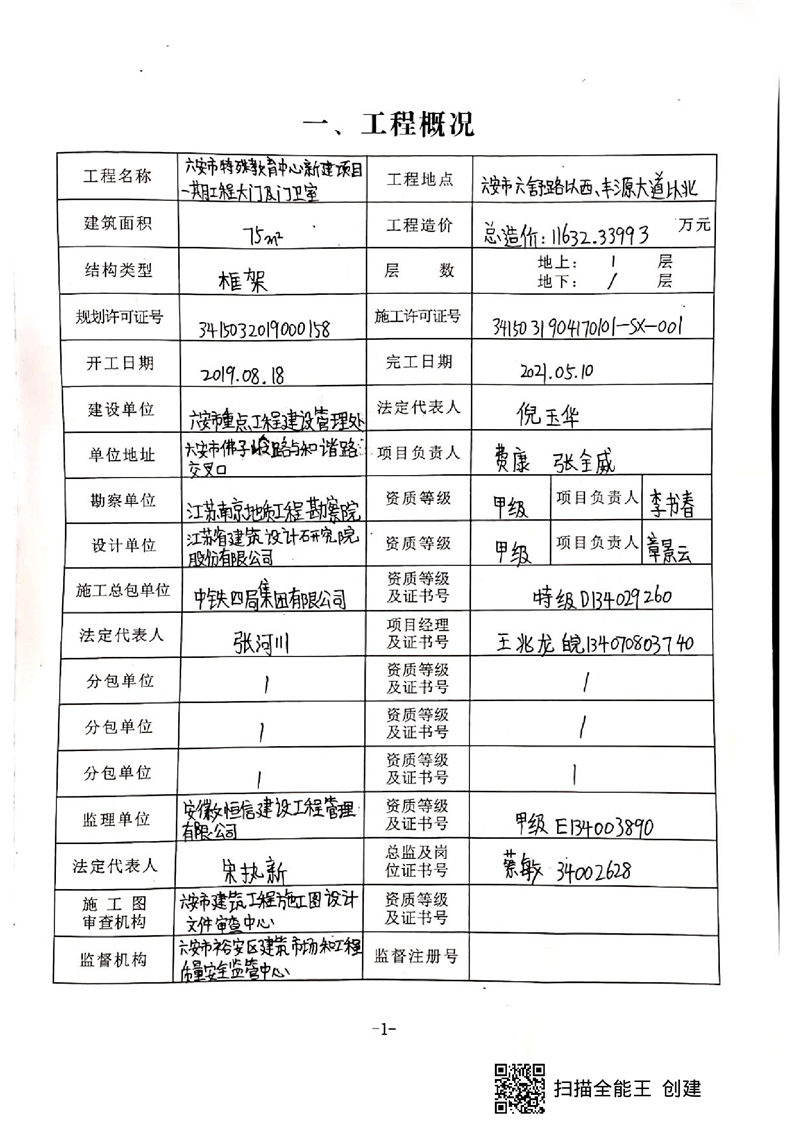 一、工程概况
工程名称 六安市特殊教育中心新建项目一期工程大门及门卫室 工程地点 六安市六舒路以西、丰源大道以北
建筑面积 75m² 工程造价 总造价:11632.33993 万元
结构类型 框架 层 数 地上: 1 层
地下: / 层
规划许可证号 341503201900158 施工许可证号 3415031904170101-SX-001
开工日期 2019.08.18 完工日期 2021.05.10
建设单位 六安市重点工程建设管理处 法定代表人 倪玉华
单位地址 六安市佛子岭路与和谐路交叉口 项目负责人 费康 张全威
勘察单位 江苏南京地质工程勘察院 资质等级 甲级 项目负责人 李书春
设计单位 江苏省建筑设计研究院股份有限公司 资质等级 甲级 项目负责人 章景云
施工总包单位 中铁四局集团有限公司 资质等级及证书号 特级D134029260
法定代表人 张河川 项目经理及证书号 王兆龙 皖134070803740
分包单位 / 资质等级及证书号 /
分包单位 / 资质等级及证书号 /
分包单位 / 资质等级及证书号 /
监理单位 安徽恒信建设工程管理有限公司 资质等级及证书号 甲级E134003890
法定代表人 宋执新 总监及岗位证书号 蔡敏 34002628
施工图审查机构 六安市建筑工程施工图设计文件审查中心 资质等级及证书号
监督机构 六安市裕安区建筑市场和工程质量安全监管中心 监督注册号
-1-
扫描全能王 创建